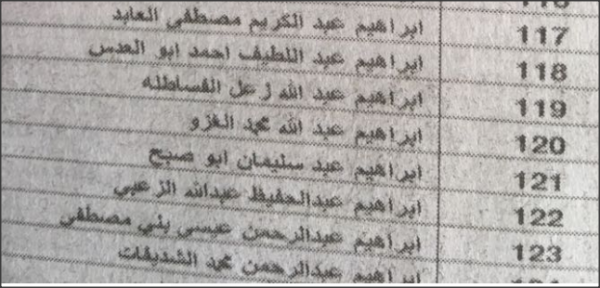 116
117 ابراهيم عبد الكريم مصطفى العابد
118 ابراهيم عبد اللطيف احمد ابو العدس
119 ابراهيم عبد الله زعل القساطله
120 ابراهيم عبد الله محمد الغزو
121 ابراهيم عبد سليمان ابو صبح
122 ابراهيم عبدالحفيظ عبدالله الزعبي
123 ابراهيم عبدالرحمن عيسى بني مصطفى
124 ابراهيم عبدالرحمن محمد الشديفات